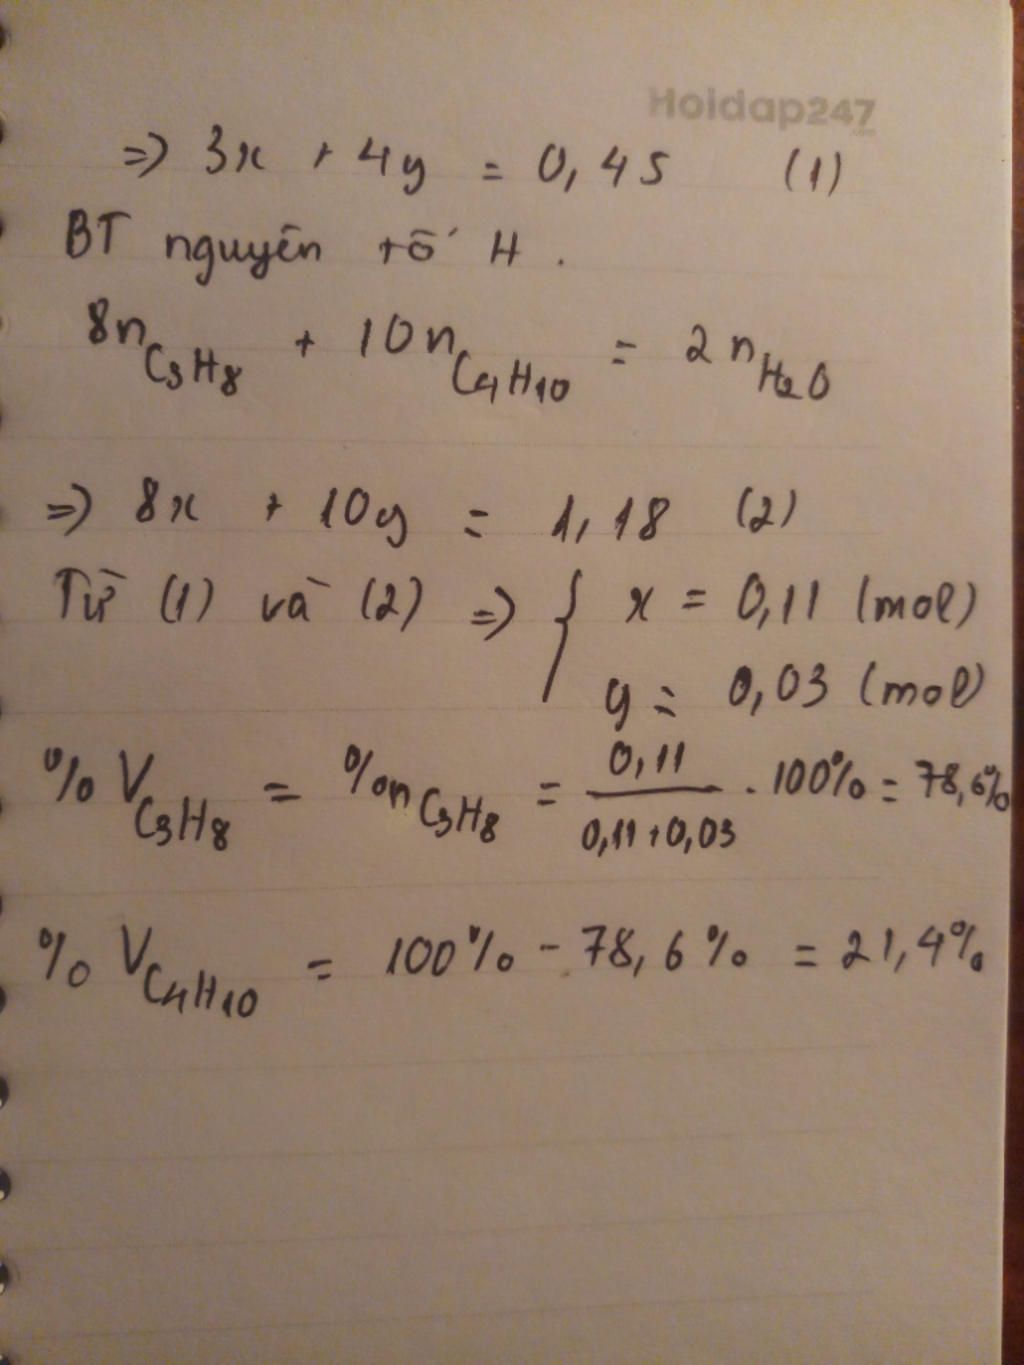 Hoidap247
=> 3x + 4y = 0,45 (1)
BT nguyên tố H.
8n_{C3H8} + 10n_{C4H10} = 2n_{H2O}
=> 8x + 10y = 1,18 (2)
Từ (1) và (2) => { x = 0,11 (mol)
y = 0,03 (mol)
%V_{C3H8} = %n_{C3H8} = \frac{0,11}{0,11+0,03} . 100% = 78,6%
%V_{C4H10} = 100% - 78,6% = 21,4%